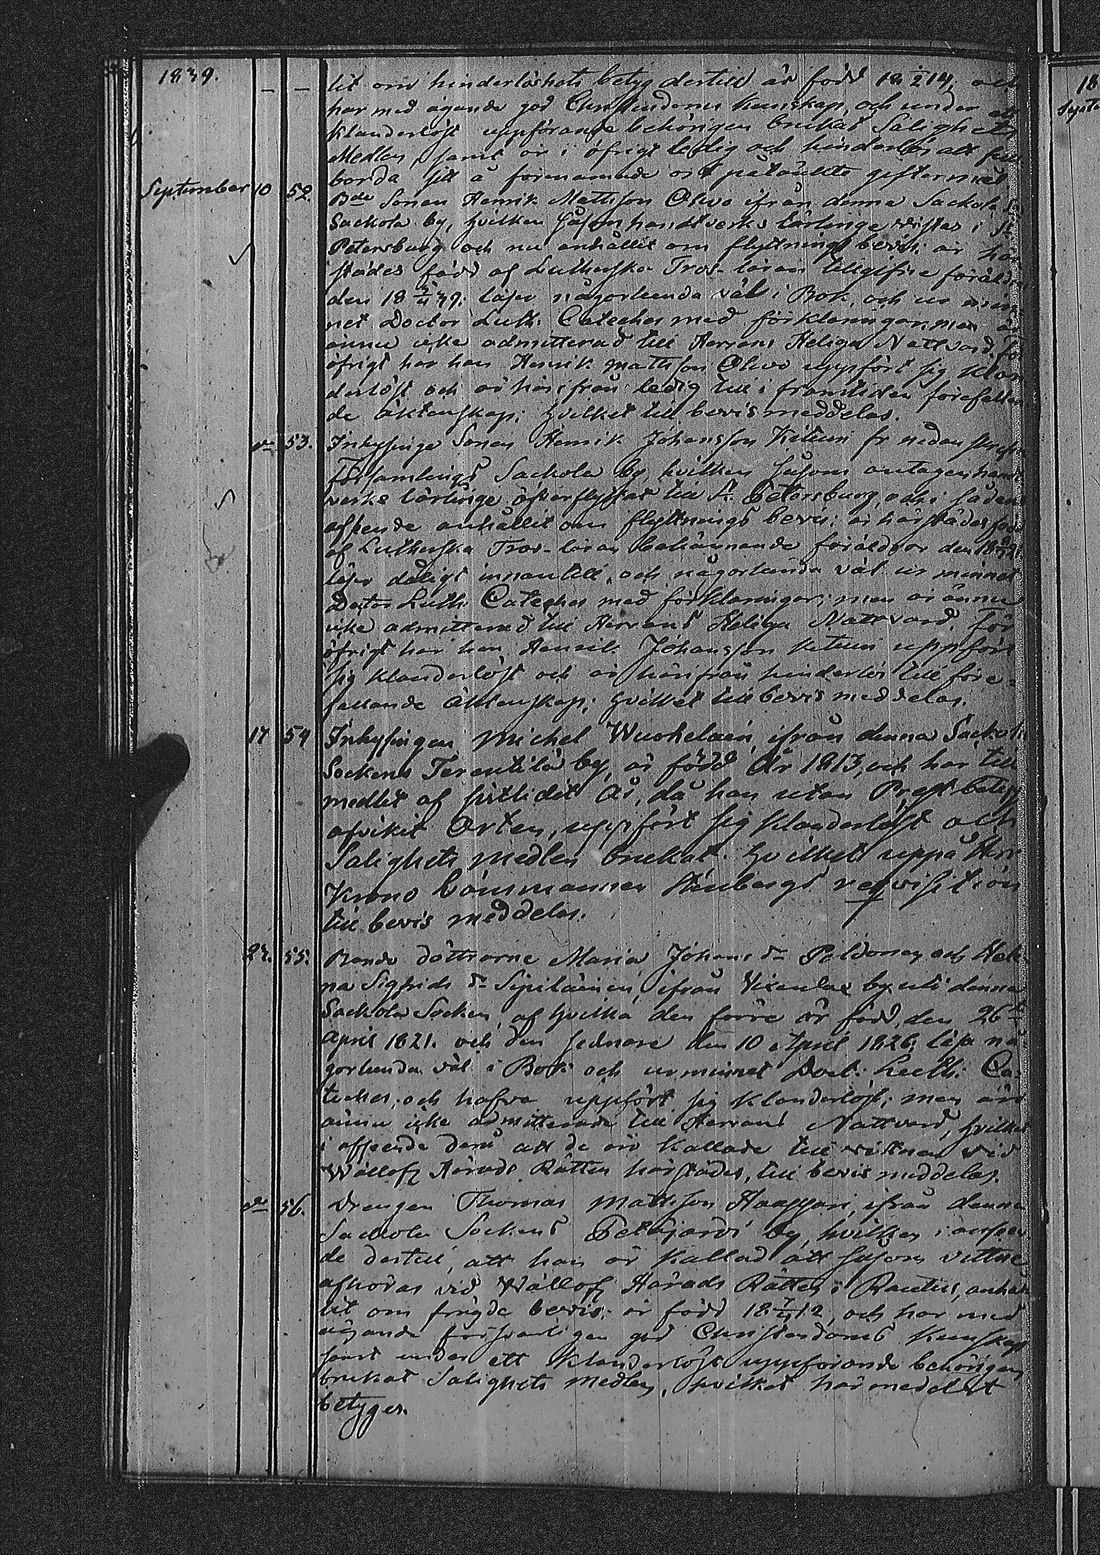 1839.
lit om hinderlöshets betyg dertill är född 18 2/2 14, och
har med ägande god Christendoms kunskap, och under ett
klanderlöst uppförande behörigen brukat Salighets
Medlen, samt är i öfrigt ledig och hinderlös att full
borda sitt å förenämnde ort påtänkte giftermål
September 10 52. Bde Sonen Henrik Mattsson Olwo ifrån denna Sackola S:
Sackola by, hvilken såsom handtverks lärlinge vistas i St
Petersburg och nu anhållit om flyttnings bevis; är här
städes född af Lutherska Tros-läran tillgifne föräldrar
den 18 39. läser någorlunda väl i Bok, och ur min
net Doctor Luth: Cateches med förklaringar, men är
ännu icke admitterad till Herrans Heliga Nattvard. För
öfrigt har han Henrik Mattsson Olwo uppfört sig klan
derlöst och är härifrån ledig till i framtiden förefallan
de äktenskap; hvilket till bevis meddelas.
do 53. Inhysinge Sonen Henrik Johansson Kituni fr nedanskrefne
Församlings Sackola by hvilken såsom antagen hand
verks lärlinge öfverflyttat till St. Petersburg, och i sådant
afseende anhållit om flyttnings bevis; är härstädes född
af Lutherska Tros-läran bekännande föräldrar den 18
läser dåligt innantill, och någorlunda väl ur minnet
Doctor Luth: Cateches med förklaringar; men är ännu
icke admitterad till Herrans Heliga Nattvard För
öfrigt har han Henrik Johansson Kituni uppfört
sig klanderlöst och är härifrån hinderlös till före-
fallande äktenskap; hvilket till bevis meddelas.
17 54 Inhysingen Michel Wuohelain ifrån denna Sackola
Sockens Terentilä by, är född År 1813, och har till
medlet af sistlidet År, då han utan Prest-betyg
afvikit Orten, uppfört sig klanderlöst och
Salighets medlen brukat. Hvilket uppå Herr
Krono Länsmannen Stenbergs reqvisition
till bevis meddelas.
27. 55. Bonde döttrarne Maria Johans dr Paldoney och Hele
na Sigfrids dr Sipiläinen ifrån Wixenlax by uti denna
Sackola Socken, af hvilka den förre är född den 26te
April 1821. och den sednare den 10 April 1826 läsa nå
gorlunda väl i Bok och ur minnet Doct: Luth: Ca-
teches, och hafva uppfört sig klanderlöst; men äro
ännu icke admitterade till Herrans Nattvard, hvilket
i afseende derå att de äro kallade till vittnen vid
Walloff Härads Rätten härstädes, till bevis meddelas.
do 56. Drengen Thomas Mattsson Haappain ifrån denna
Sackola Sockens Petäjärvi by, hvilken i anseen
de dertill, att han är kallad att såsom vittne
afhöras vid Walloff Härads Rätten i Rautus, anhål
lit om frägde bevis: är född 18 7/4 12, och har med
ägande försvarligen god Christendoms kunskap
samt under ett klanderlöst uppförande behörigen
brukat Salighets medlen, hvilket här meddelst
betygas.
18
Septe